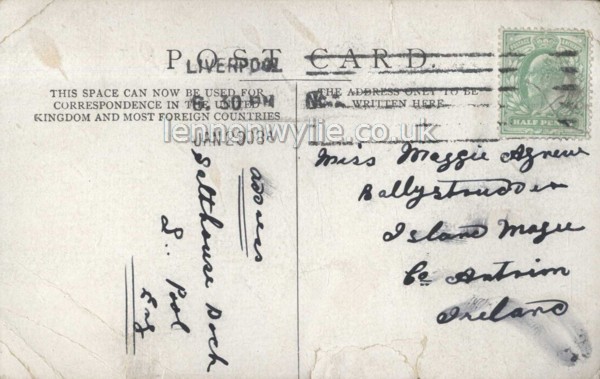 POST CARD.
LIVERPOOL
THIS SPACE CAN NOW BE USED FOR
CORRESPONDENCE IN THE UNITED
KINGDOM AND MOST FOREIGN COUNTRIES
THE ADDRESS ONLY TO BE
WRITTEN HERE.
5.30 PM
JAN 29
lennonwylie.co.uk
HALF PENNY
Miss Maggie Agnew
Ballystrudder
Island Magee
Co Antrim
Ireland
address
Salthouse Dock
L.. Pool
Eng